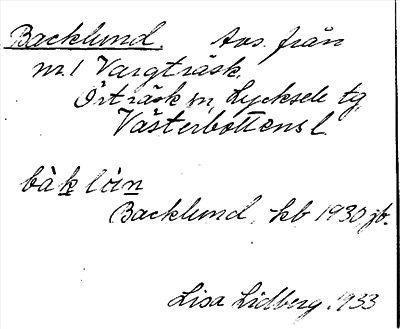 Backlund. Avs. från
nr 1 Vargträsk,
Örträsk sn, Lycksele tg,
Västerbottens l.
Backlund, kb 1930, jb.
Lisa Lidberg, 1933